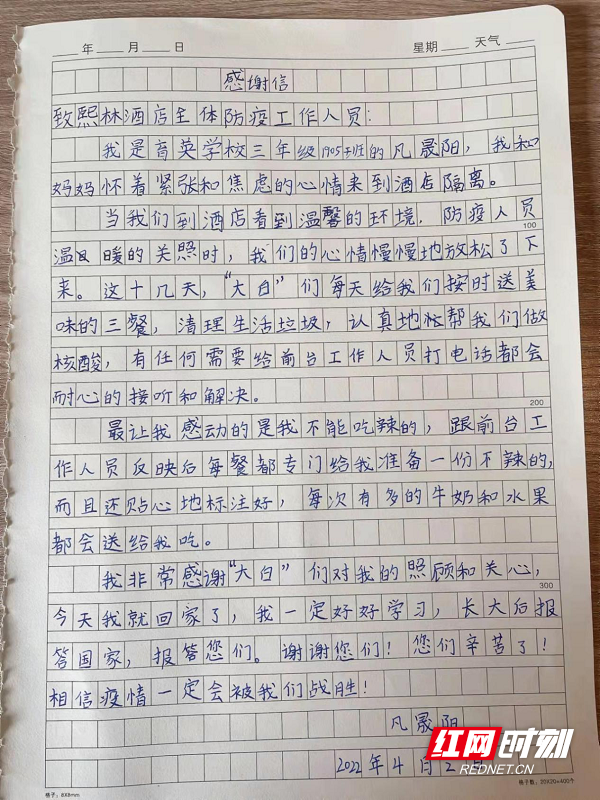 年 月 日 星期 天气
感谢信
致熙林酒店全体防疫工作人员：
我是育英学校三年级1905班的凡晟阳，我和
妈妈怀着紧张和焦虑的心情来到酒店隔离。
当我们到酒店看到温馨的环境，防疫人员
100
温暖的关照时，我们的心情慢慢地放松了下
来。这十几天，“大白”们每天给我们按时送美
味的三餐，清理生活垃圾，认真地帮我们做
核酸，有任何需要给前台工作人员打电话都会
耐心的接听和解决。
200
最让我感动的是我不能吃辣的，跟前台工
作人员反映后每餐都专门给我准备一份不辣的，
而且还贴心地标注好，每次有多的牛奶和水果
都会送给我吃。
我非常感谢“大白”们对我的照顾和关心，
300
今天我就回家了，我一定好好学习，长大后报
答国家，报答您们。谢谢您们！您们辛苦了！
相信疫情一定会被我们战胜！
凡晟阳
2022年4月2日
红网时刻
REDNET.CN
格子：8X8mm 格子数：20X20=400个